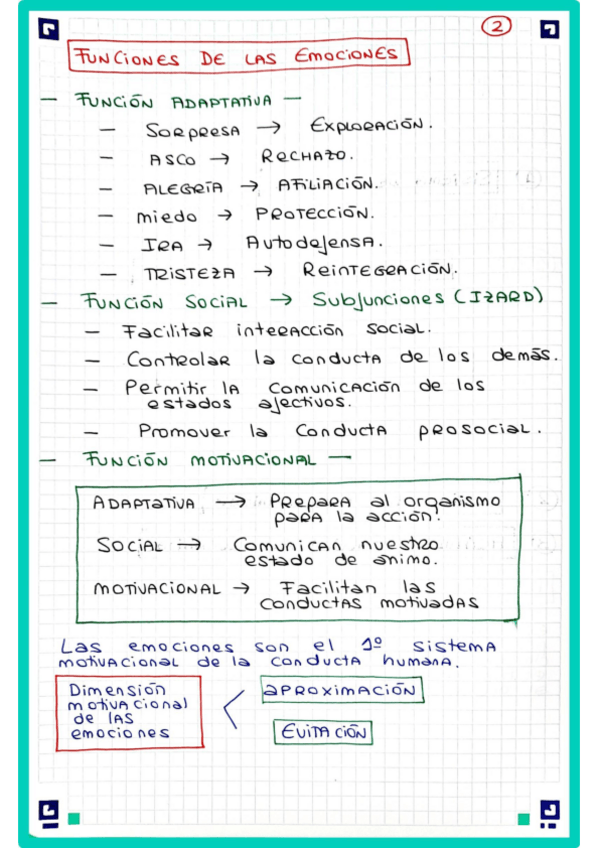 2
FUNCIONES DE LAS EMOCIONES
— FUNCIÓN ADAPTATIVA —
— SORPRESA → EXPLORACIÓN.
— ASCO → RECHAZO.
— ALEGRÍA → AFILIACIÓN.
— miedo → PROTECCIÓN.
— IRA → Autodefensa.
— TRISTEZA → ReinTEGRACIÓN.
— FUNCIÓN SOCIAL → Subfunciones (IZARD)
— Facilitar interacción social.
— Controlar la conducta de los demás.
— Permitir la comunicación de los
estados afectivos.
— Promover la conducta prosocial.
— FUNCIÓN MOTIVACIONAL —
ADAPTATIVA → Prepara al organismo
para la acción.
SOCIAL → Comunican nuestro
estado de ánimo.
MOTIVACIONAL → Facilitan las
conductas motivadas
Las emociones son el 1º sistema
motivacional de la conducta humana.
Dimensión
motivacional
de las
emociones
APROXIMACIÓN
EVITACIÓN